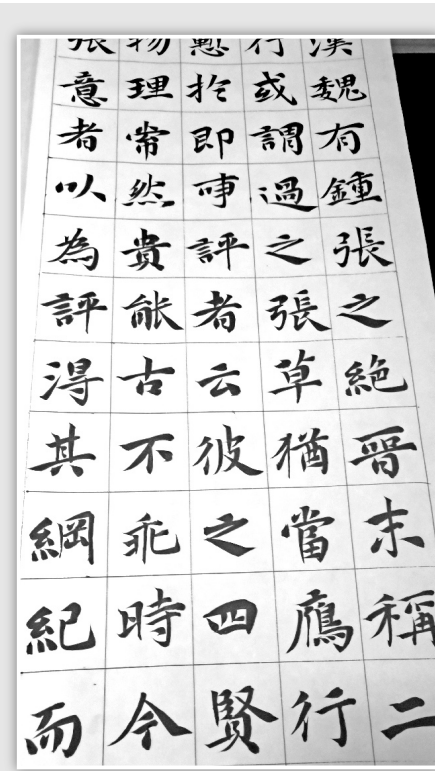 漢魏有鍾張之絕晉末稱二
行或謂過之張草猶當鴈行
慙扵即事評者云彼之四賢
物理常然貴能古不乖時今
張意者以為評得其綱紀而